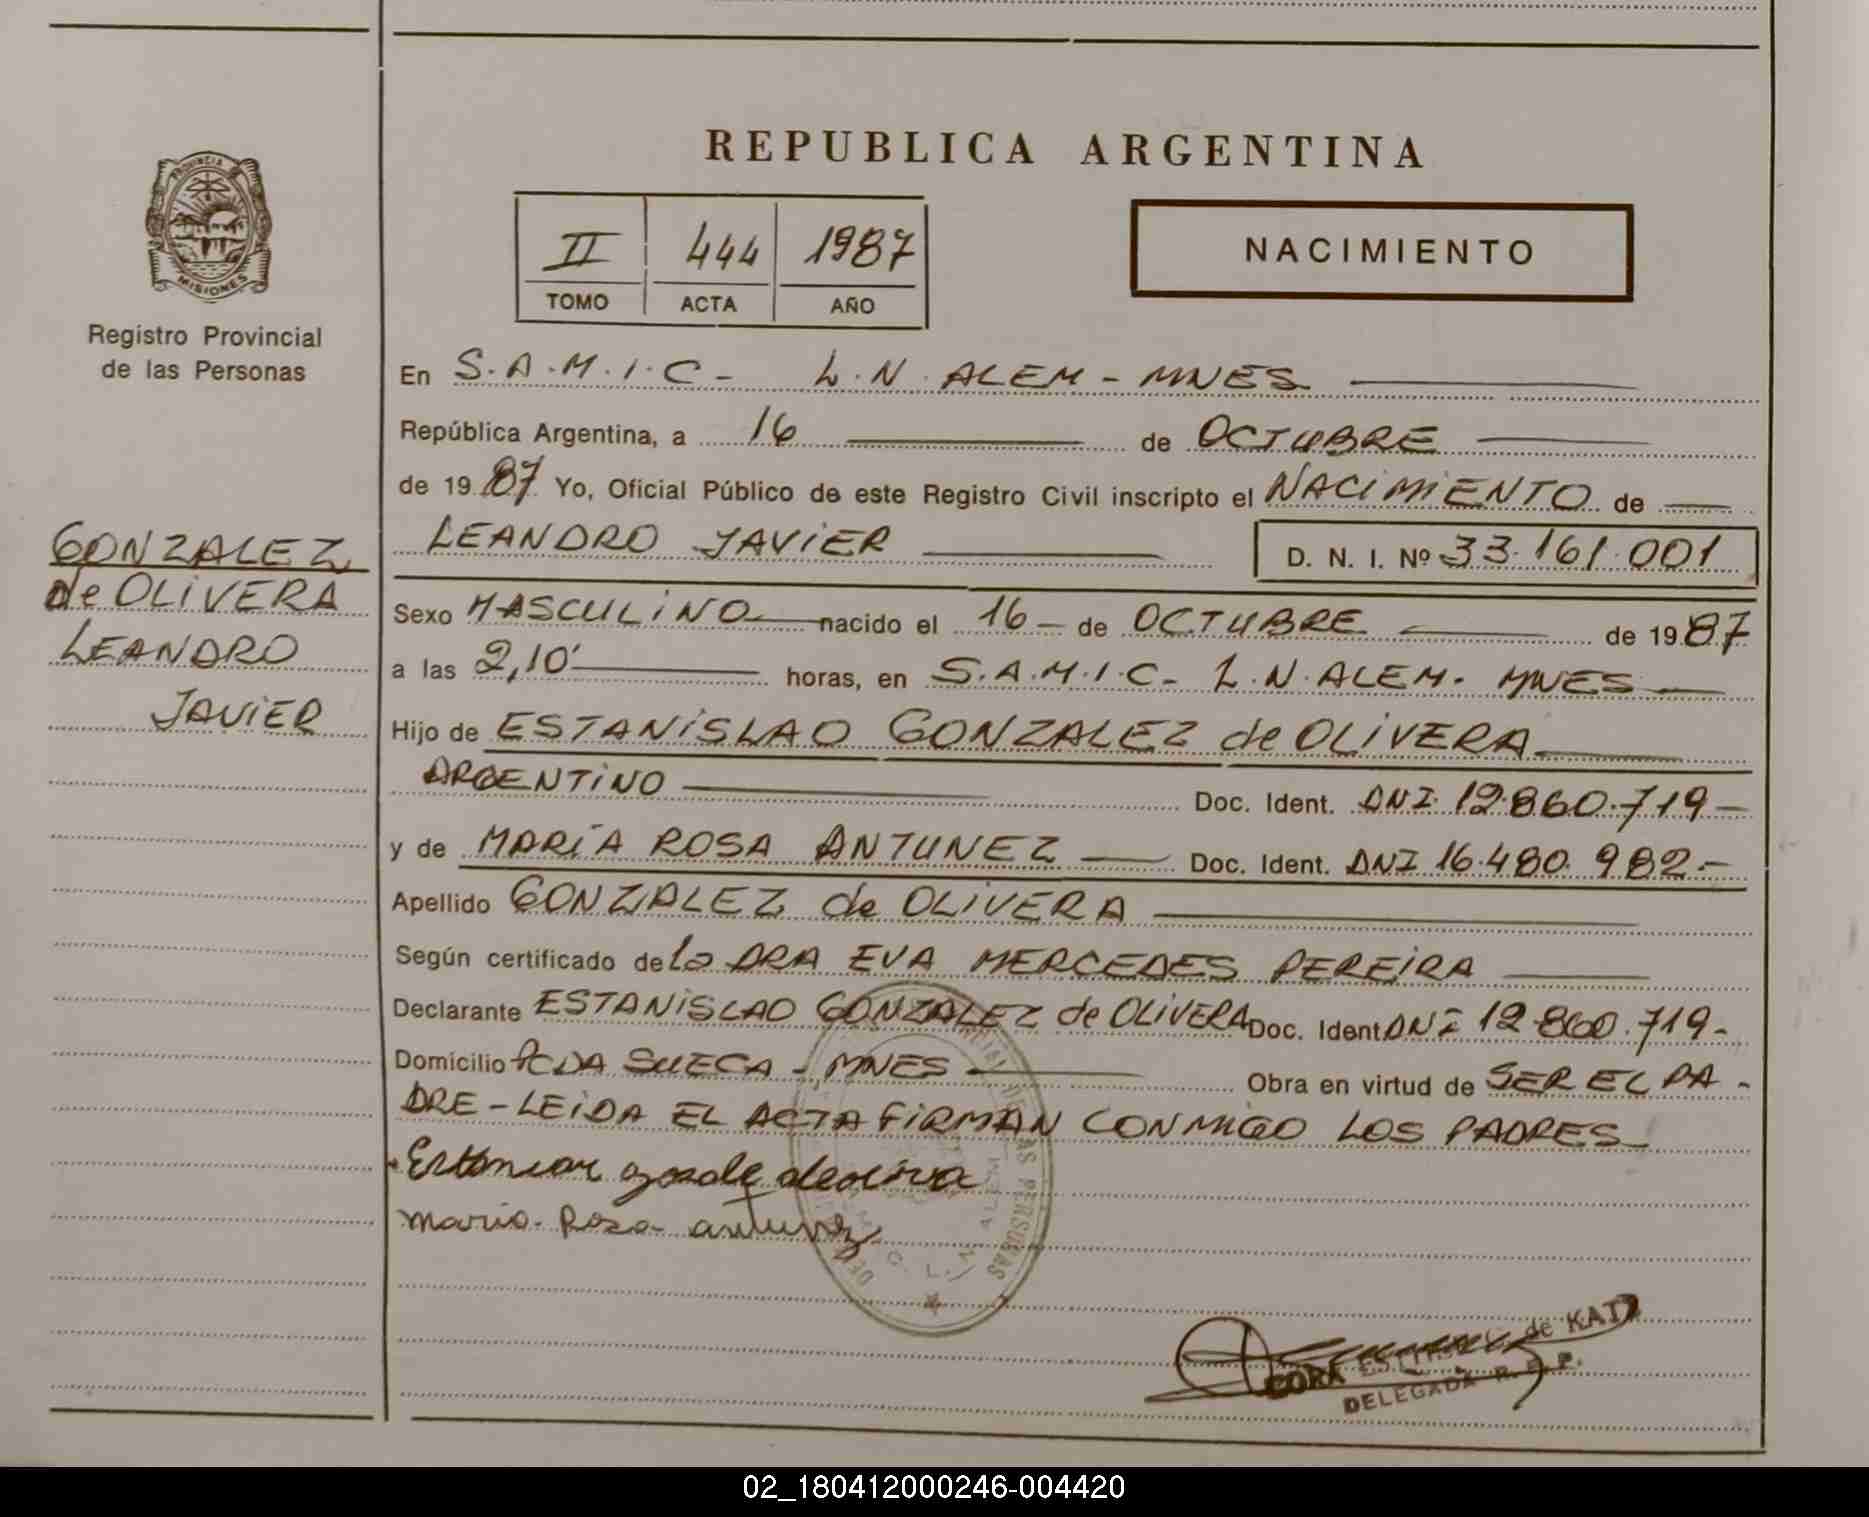 REPUBLICA ARGENTINA
PROVINCIA
MISIONES
Registro Provincial
de las Personas
II 444 1987
TOMO ACTA AÑO
NACIMIENTO
En S.A.M.I.C- L.N.ALEM-MNES
República Argentina, a 16 de OCTUBRE
de 1987 Yo, Oficial Público de este Registro Civil inscripto el NACIMIENTO de
LEANDRO JAVIER D. N. I. Nº 33.161.001
GONZALEZ
de OLIVERA
LEANDRO
JAVIER
Sexo MASCULINO nacido el 16 - de OCTUBRE de 1987
a las 2,10' horas, en S.A.M.I.C- L.N.ALEM. MNES
Hijo de ESTANISLAO GONZALEZ de OLIVERA
ARGENTINO Doc. Ident. DNI 12.860.719-
y de MARÍA ROSA ANTUNEZ Doc. Ident. DNI 16.480.982-
Apellido GONZALEZ de OLIVERA
Según certificado de la DRA EVA MERCEDES PEREIRA
Declarante ESTANISLAO GONZALEZ de OLIVERA Doc. Ident DNI 12.860.719-
Domicilio PCDA SUECA - MNES Obra en virtud de SER EL PA-
DRE-LEIDA EL ACTA FIRMAN CONMIGO LOS PADRES
Maria Rosa antunez
L.N. ALEM
AS PERSONAS
de KATZ
DELEGADA R. P. P.
02_180412000246-004420